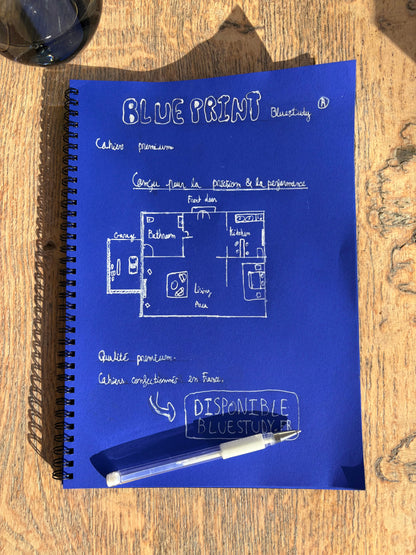 BLUE PRINT Bluestudy R
Cahier premium
Conçu pour la précision & la performance
Front door
Garage
Bathroom
Kitchen
Living
Area
Qualité premium.
Cahiers confectionnés en France.
DISPONIBLE
BLUESTUDY.FR